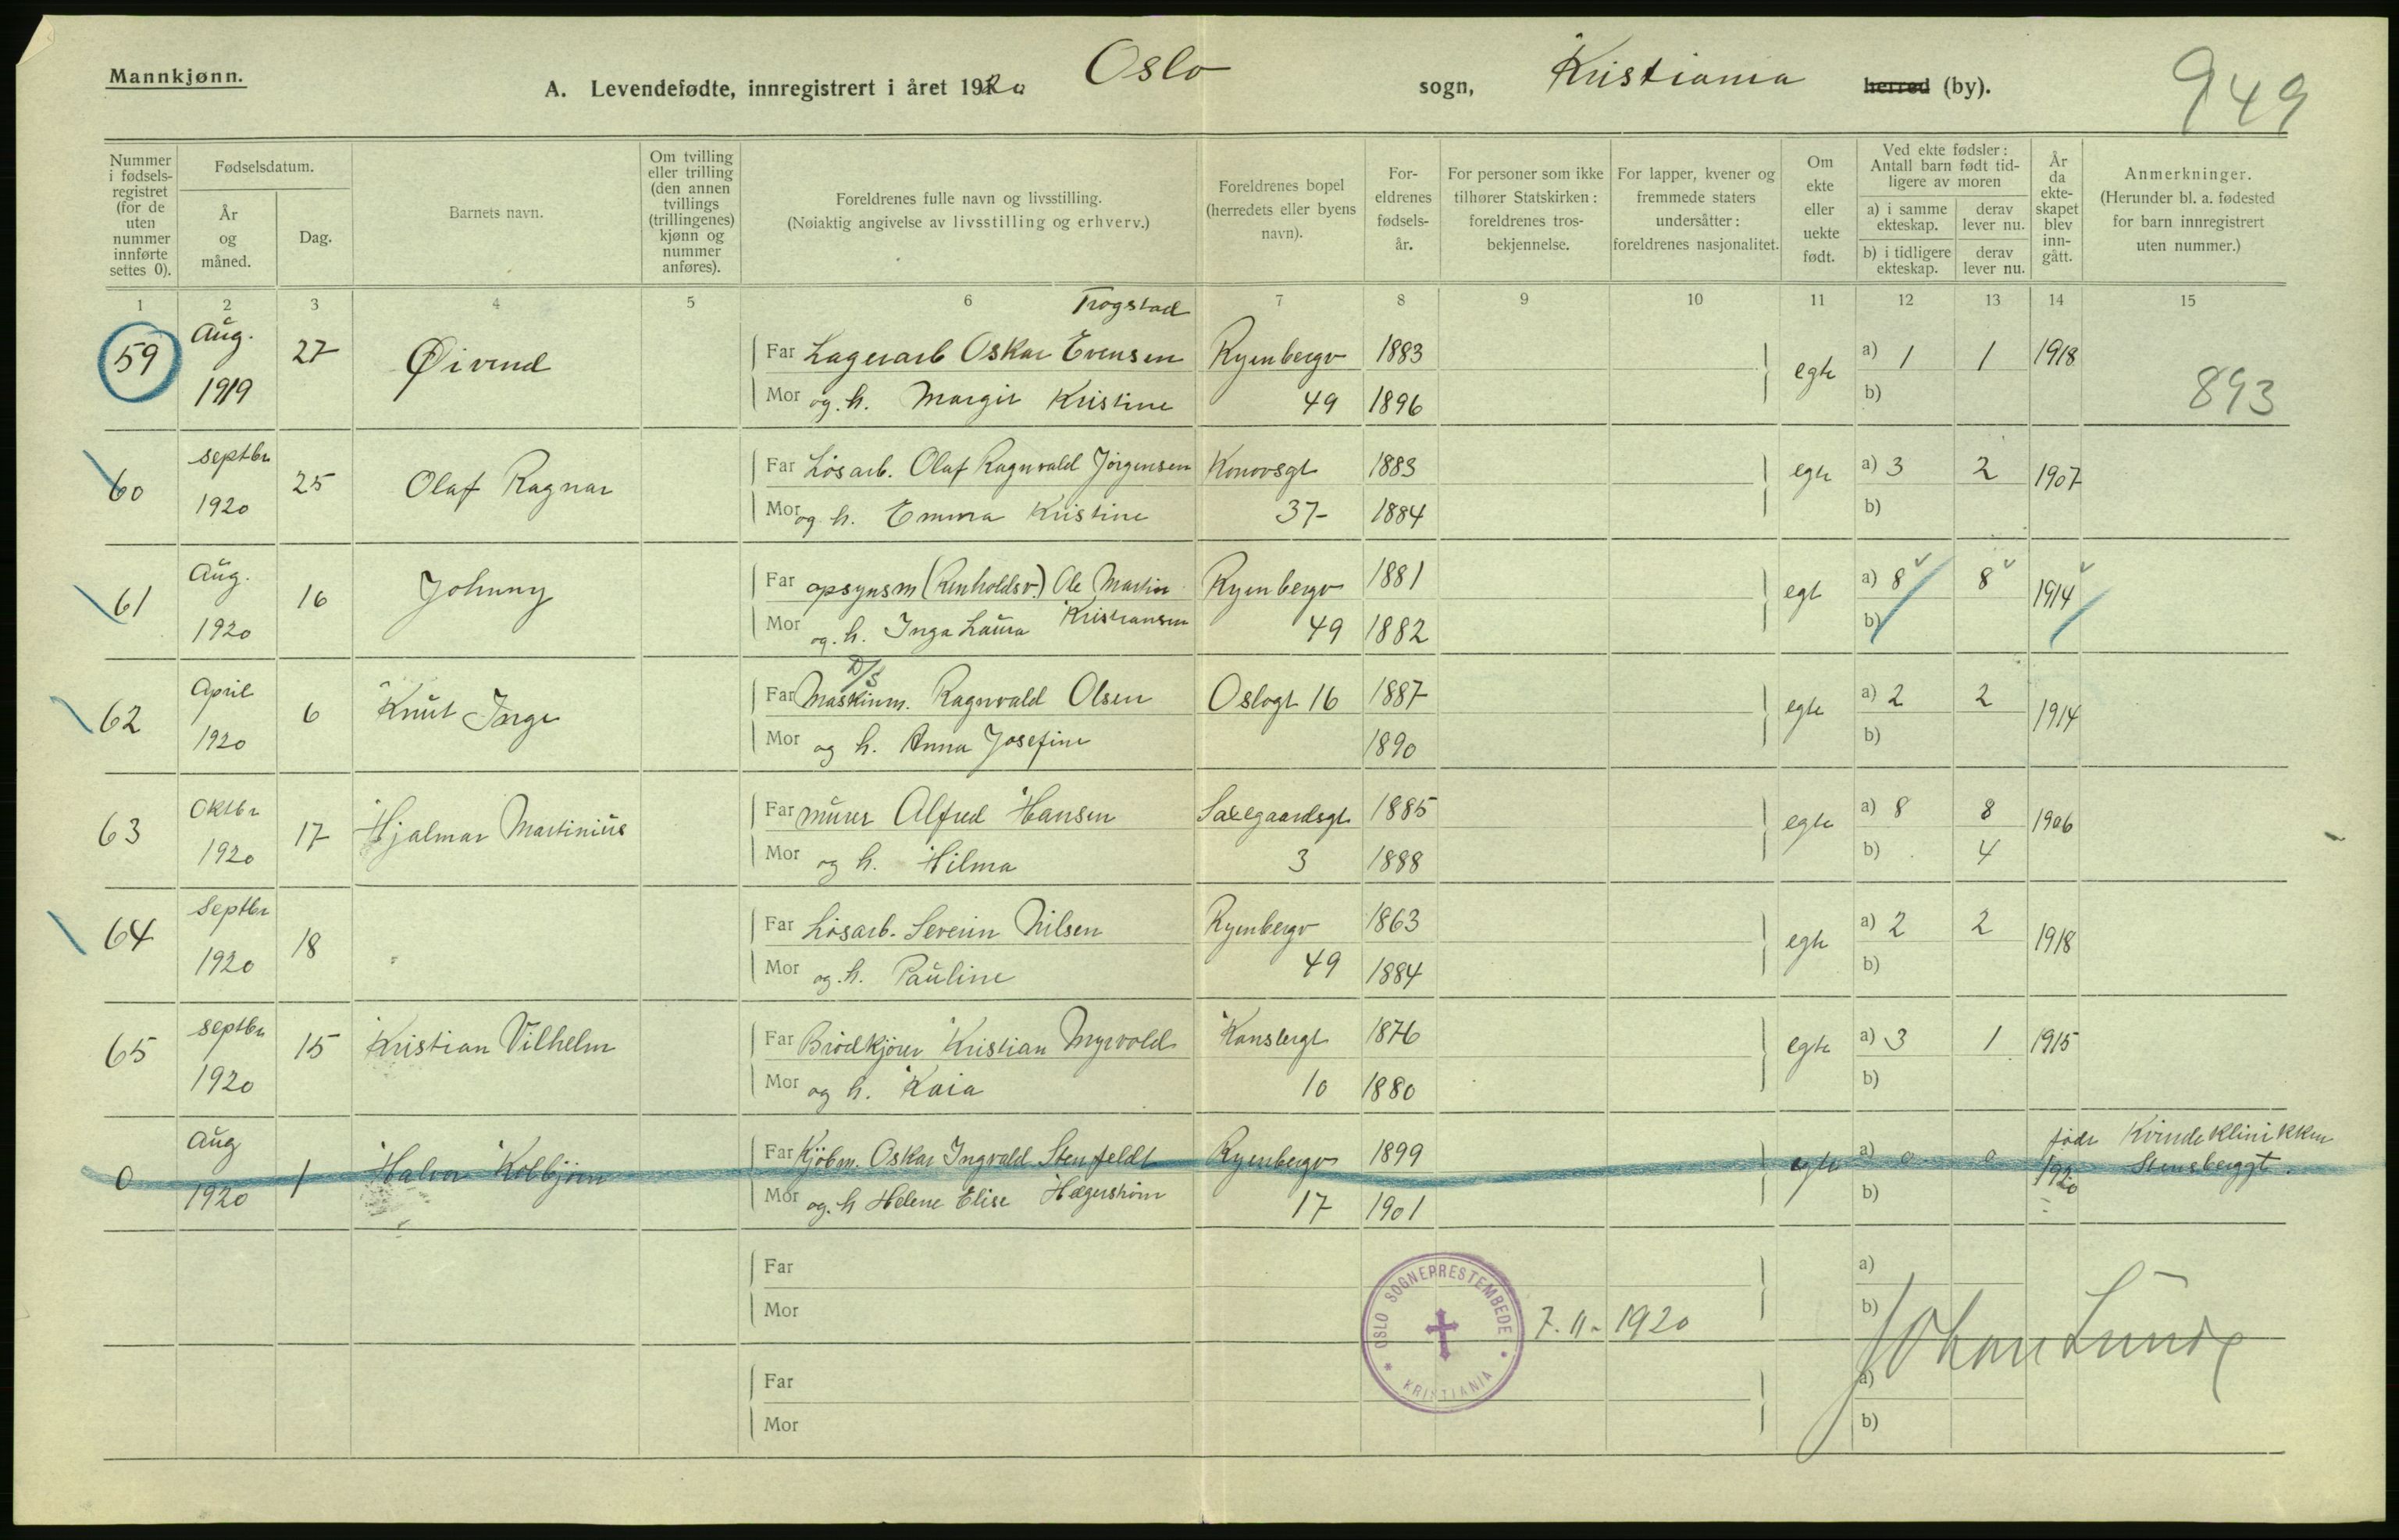 Mannkjønn.
A. Levendefødte, innregistrert i året 1920 Oslo sogn, Kristiania herred (by). 949
Nummer i fødselsregistret (for de uten nummer innførte settes 0).
Fødselsdatum.
År og måned.
Dag.
Barnets navn.
Om tvilling eller trilling (den annen tvillings (trillingenes) kjønn og nummer anføres).
Foreldrenes fulle navn og livsstilling.
(Nøiaktig angivelse av livsstilling og erhverv.)
Foreldrenes bopel (herredets eller byens navn).
Foreldrenes fødselsår.
For personer som ikke tilhører Statskirken: foreldrenes trosbekjennelse.
For lapper, kvener og fremmede staters undersåtter: foreldrenes nasjonalitet.
Om ekte eller uekte født.
Ved ekte fødsler: Antall barn født tidligere av moren
a) i samme ekteskap. derav lever nu.
b) i tidligere ekteskap. derav lever nu.
År da ekteskapet blev inngått.
Anmerkninger.
(Herunder bl. a. fødested for barn innregistrert uten nummer.)
1 2 3 4 5 6 7 8 9 10 11 12 13 14 15
Trogstad
59 Aug. 1919 27 Øivind Far Lagerarb Oskar Evensen Ryenbergv 1883 egte a) 1 1 1918
Mor og. h. Margit Kristine 49 1896 b) 893
60 Septbr 1920 25 Olaf Ragnar Far Løsarb. Olaf Ragnvald Jörgensen Konowsgt 1883 egte a) 3 2 1907
Mor og. h. Emma Kristine 37 1884 b)
61 Aug. 1920 16 Johnny Far opsynsm (Renholdsv.) Ole Martin Ryenbergv 1881 egte a) 8 8 1914
Kristiansen
Mor og. h. Inga Laura 49 1882 b)
D/S
62 April 1920 6 Knut Inge Far Maskinm. Ragnvald Olsen Oslogt 16 1887 egte a) 2 2 1914
Mor og h. Anna Josefine 1890 b)
63 Oktbr 1920 17 Hjalmar Martinius Far murer Alfred Hansen Saxegaardsgt 1885 egte a) 8 8 1906
Mor og h. Hilma 3 1888 b) 4
64 Septbr 1920 18 Far Løsarb. Severin Nilsen Ryenbergv 1863 egte a) 2 2 1918
Mor og. h. Pauline 49 1884 b)
65 Septbr 1920 15 Kristian Vilhelm Far Brödkjörer Kristian Myrvold 1876 egte a) 3 1 1915
Mor og h. Kaia 10 1880 b)
0 Aug 1920 1 Halvor Kolbjörn Far Kjöbm. Oskar Ingvald Stenfeldt Ryenbergv 1899 egte a) 0 0 1920 född Kvindeklinikken Stensberggt.
Mor og. h Helene Elise Hægerström 17 1901 b)
Far a)
Mor b)
OSLO SOGNEPRESTEMBEDE * KRISTIANIA *
7.11-1920
Johan Lunde
Far a)
Mor b)